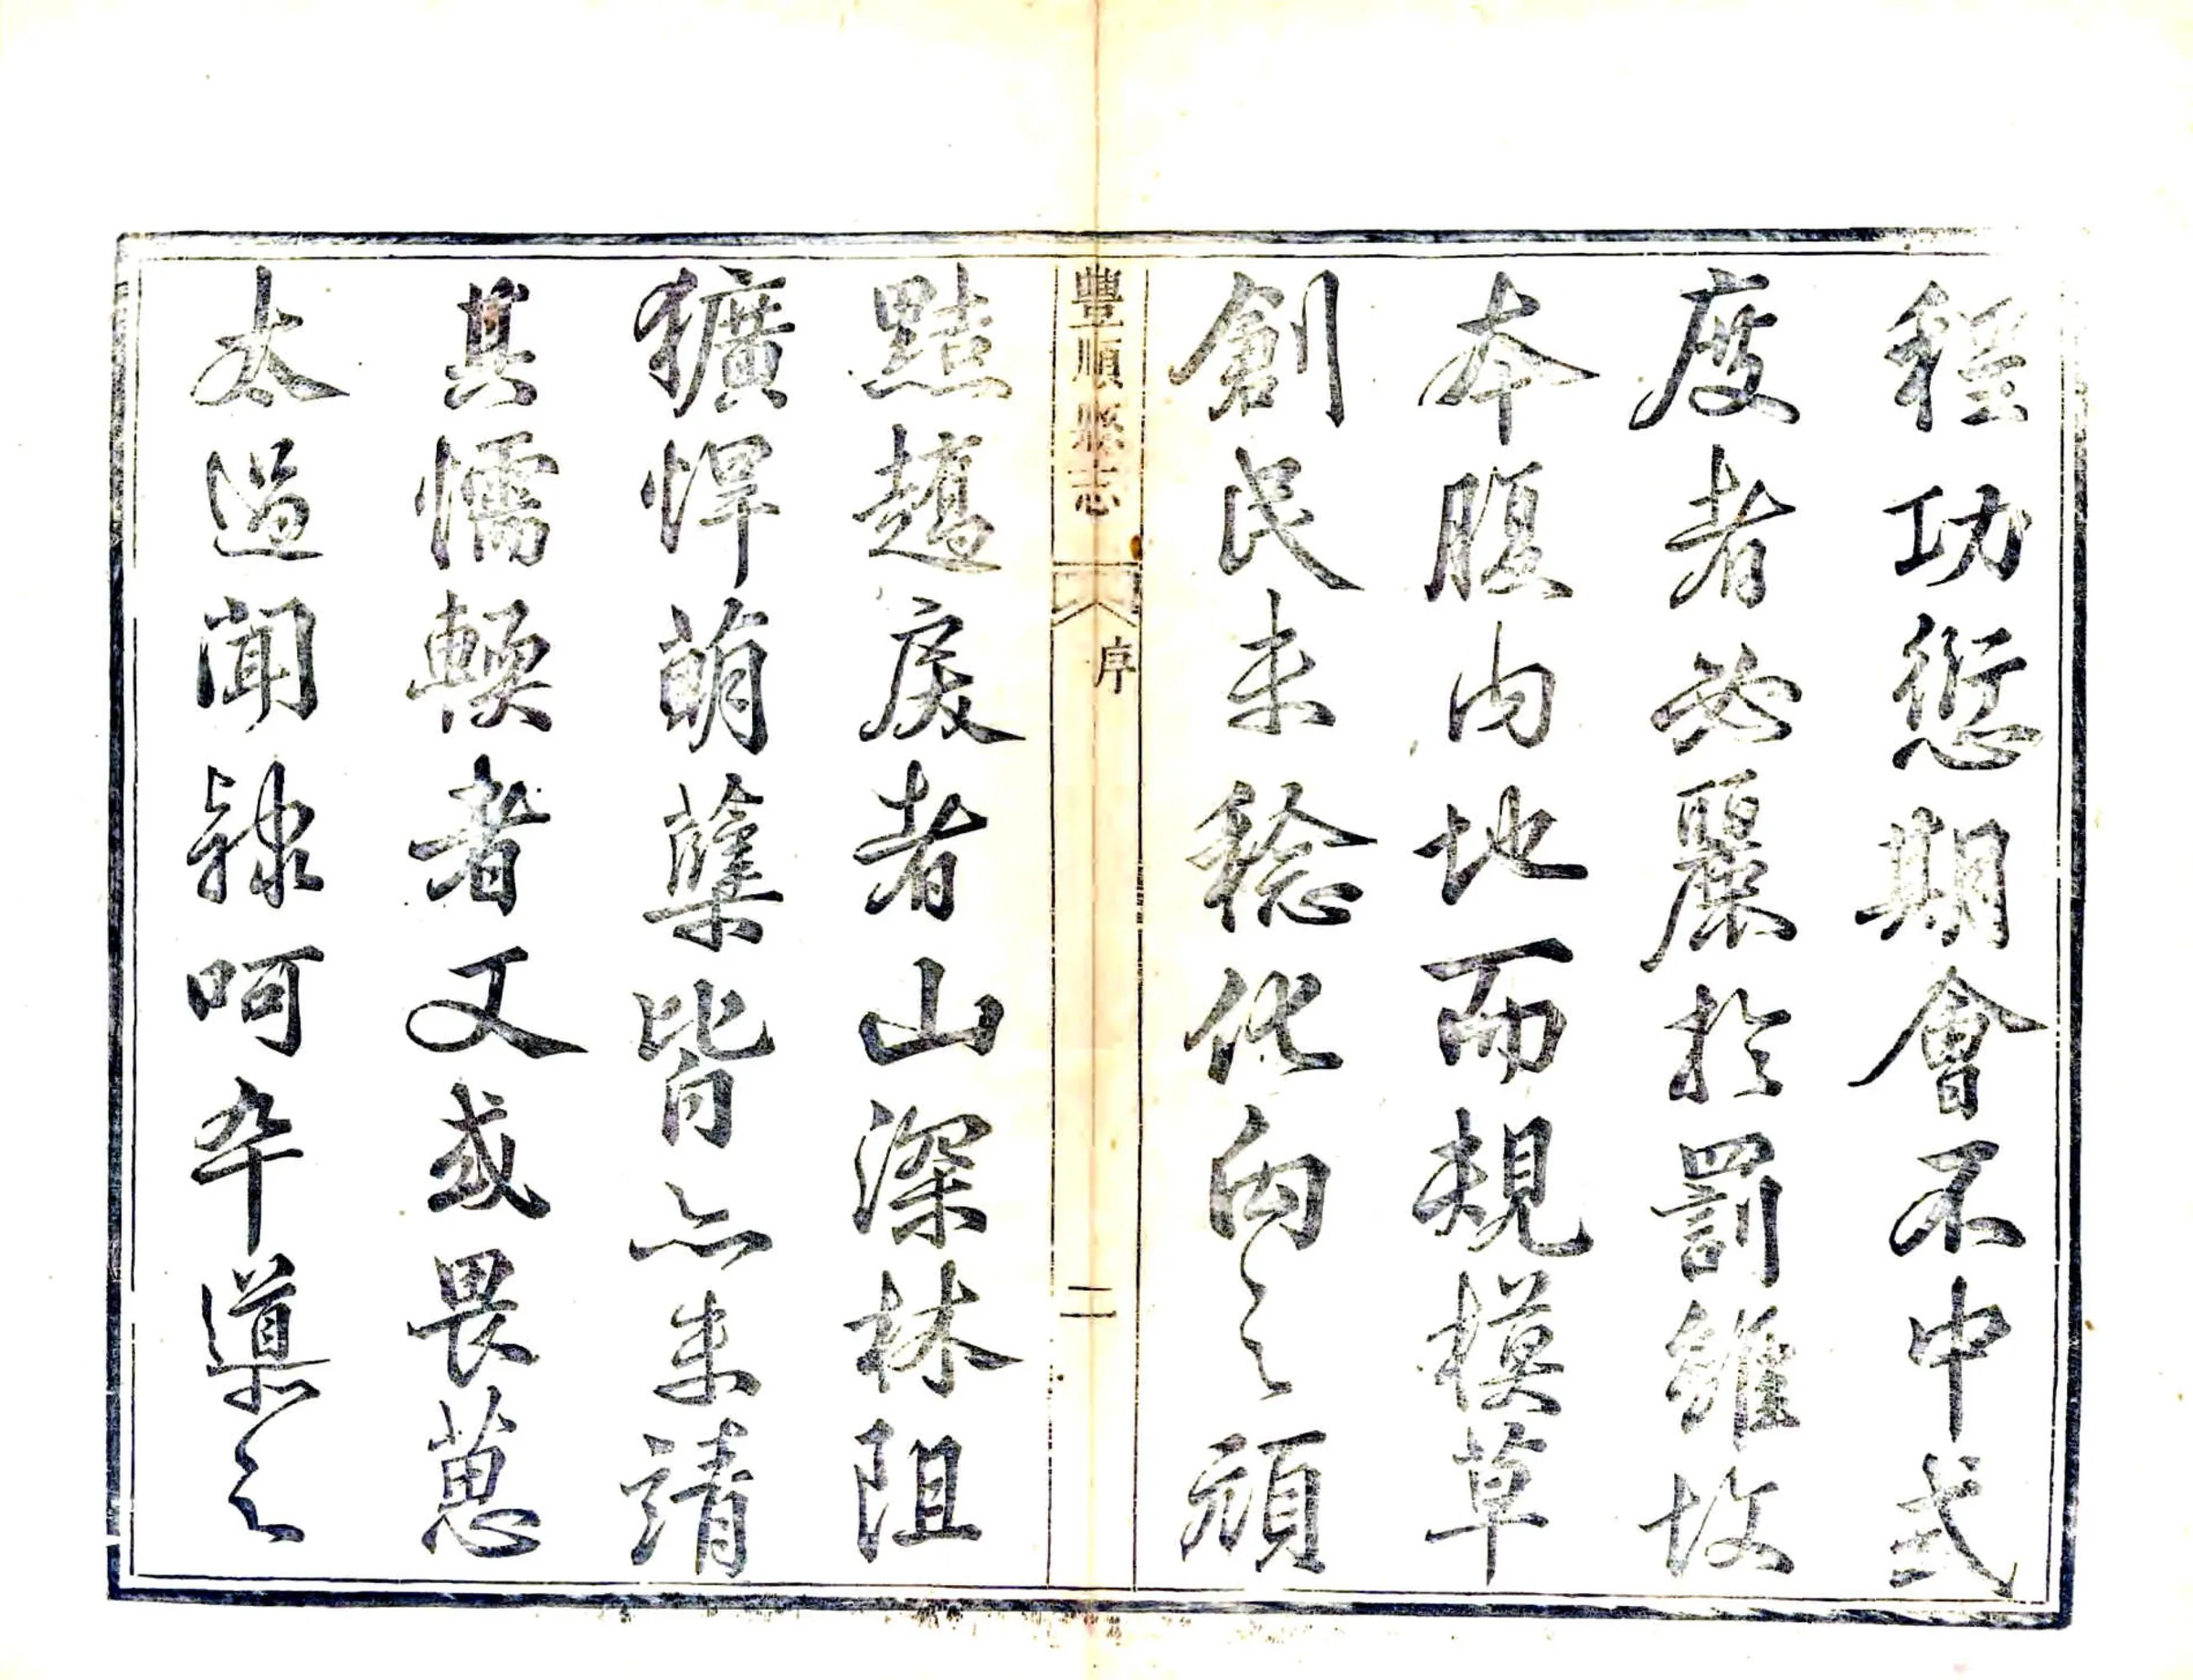 程功愆期會不中式
度者必麗於罰雖故
本腹內地而規模草
創民未稔化向之頑
豐順縣志 序 二
黠趫戾者山深林阻
獷悍萌蘖皆亦未靖
其懦輭者又或畏葸
太過聞隸呵卒導之